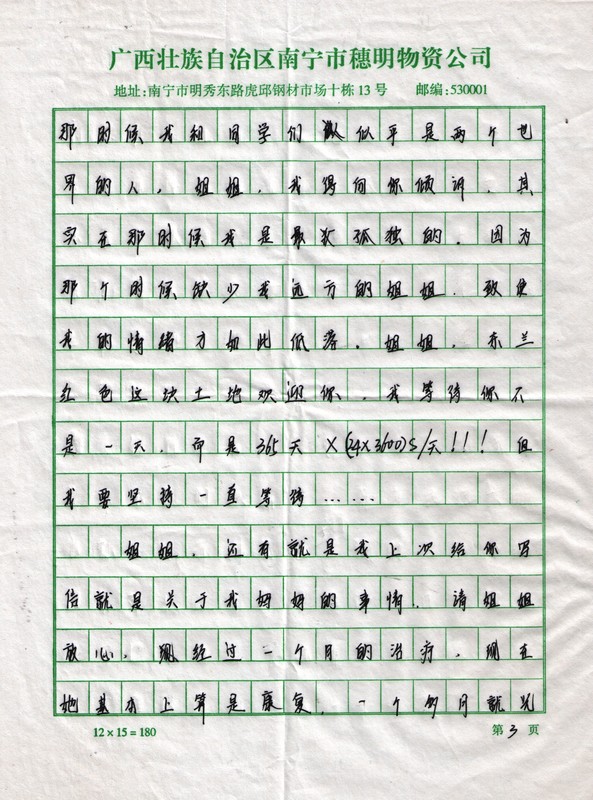 广西壮族自治区南宁市穗明物资公司
地址:南宁市明秀东路虎邱钢材市场十栋13号 邮编:530001
那时候我和同学们似乎是两个世
界的人，姐姐，我得向你倾诉，其
实在那时候我是最孤独的，因为
那个时候缺少我远方的姐姐，致使
我的情绪才如此低落。姐姐，东兰
红色这块土地欢迎你，我等待你不
是一天，而是365天×(24×3600)S/天!!!但
我要坚持一直等待……
姐姐，还有就是我上次给你写
信就是关于我妈妈的事情，请姐姐
放心，经过一个月的治疗，现在
她基本上算是康复，一个多月就
12×15=180
第3页